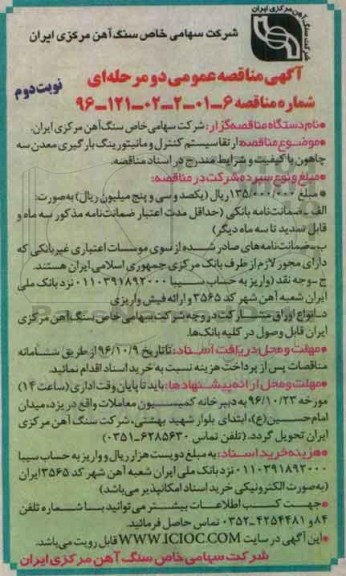 سنگ آهن مرکزی ایران
شرکت سهامی خاص سنگ آهن مرکزی ایران
آگهی مناقصه عمومی دو مرحله‌ای
نوبت دوم
شماره مناقصه ۶-۰۱-۲-۰۲-۱۲۱-۹۶
•نام دستگاه مناقصه گزار: شرکت سهامی خاص سنگ آهن مرکزی ایران.
•موضوع مناقصه: ارتقا سیستم کنترل و مانیتورینگ بارگیری معدن سه
چاهون با کیفیت و شرایط مندرج در اسناد مناقصه.
•مبلغ و نوع سپرده شرکت در مناقصه:
•مبلغ ۱۳۵/۰۰۰/۰۰۰ ریال (یکصد و سی و پنج میلیون ریال) به‌صورت:
الف-ضمانت‌نامه بانکی (حداقل مدت اعتبار ضمانت‌نامه مذکور سه ماه و
قابل تمدید تا سه ماه دیگر)
ب-ضمانت‌نامه‌های صادر شده از سوی موسسات اعتباری غیربانکی که
دارای مجوز لازم از طرف بانک مرکزی جمهوری اسلامی ایران هستند.
ج-وجه نقد (واریز به حساب سیبا ۰۱۱۰۳۹۱۸۹۲۰۰۰ نزد بانک ملی
ایران شعبه آهن شهر کد ۳۵۶۵ و ارائه فیش واریزی
د-انواع اوراق مشارکت در وجه شرکت سهامی خاص سنگ آهن مرکزی
ایران قابل وصول در کلیه بانک‌ها.
•مهلت و محل دریافت اسناد: تا تاریخ ۹۶/۱۰/۹ از طریق سامانه
مناقصات پس از پرداخت هزینه نسبت به خرید اسناد اقدام نمائید.
•مهلت و محل ارائه پیشنهادها: باید تا پایان وقت اداری (ساعت ۱۴)
مورخه ۹۶/۱۰/۲۳ به دبیرخانه کمیسیون معاملات واقع در یزد، میدان
امام حسین(ع)، ابتدای بلوار شهید بهشتی، شرکت سنگ آهن مرکزی
ایران تحویل گردد. (تلفن تماس ۶۲۸۵۶۳۰-۰۳۵۱)
•هزینه خرید اسناد: به مبلغ دویست هزار ریال و واریز به حساب سیبا
۰۱۱۰۳۹۱۸۹۲۰۰۰ نزد بانک ملی ایران شعبه آهن شهر کد ۳۵۶۵ ایران
(به‌صورت الکترونیکی خرید اسناد امکانپذیر می‌باشد)
•جهت کسب اطلاعات بیشتر می‌توانید با شماره تلفن
۸۴ و ۴۲۵۴۴۸۱-۰۳۵۲ تماس حاصل فرمائید.
•این آگهی در سایت WWW.ICIOC.COM قابل رویت می‌باشد.
شرکت سهامی خاص سنگ آهن مرکزی ایران